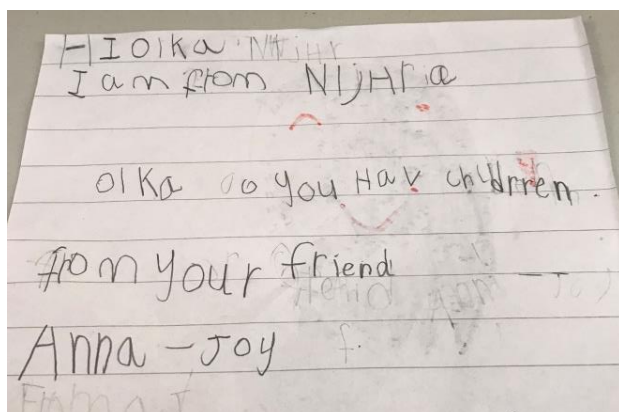 HI Olka
I am from NIjHria
Olka do you Hav childrren.
from your friend
Anna - Joy